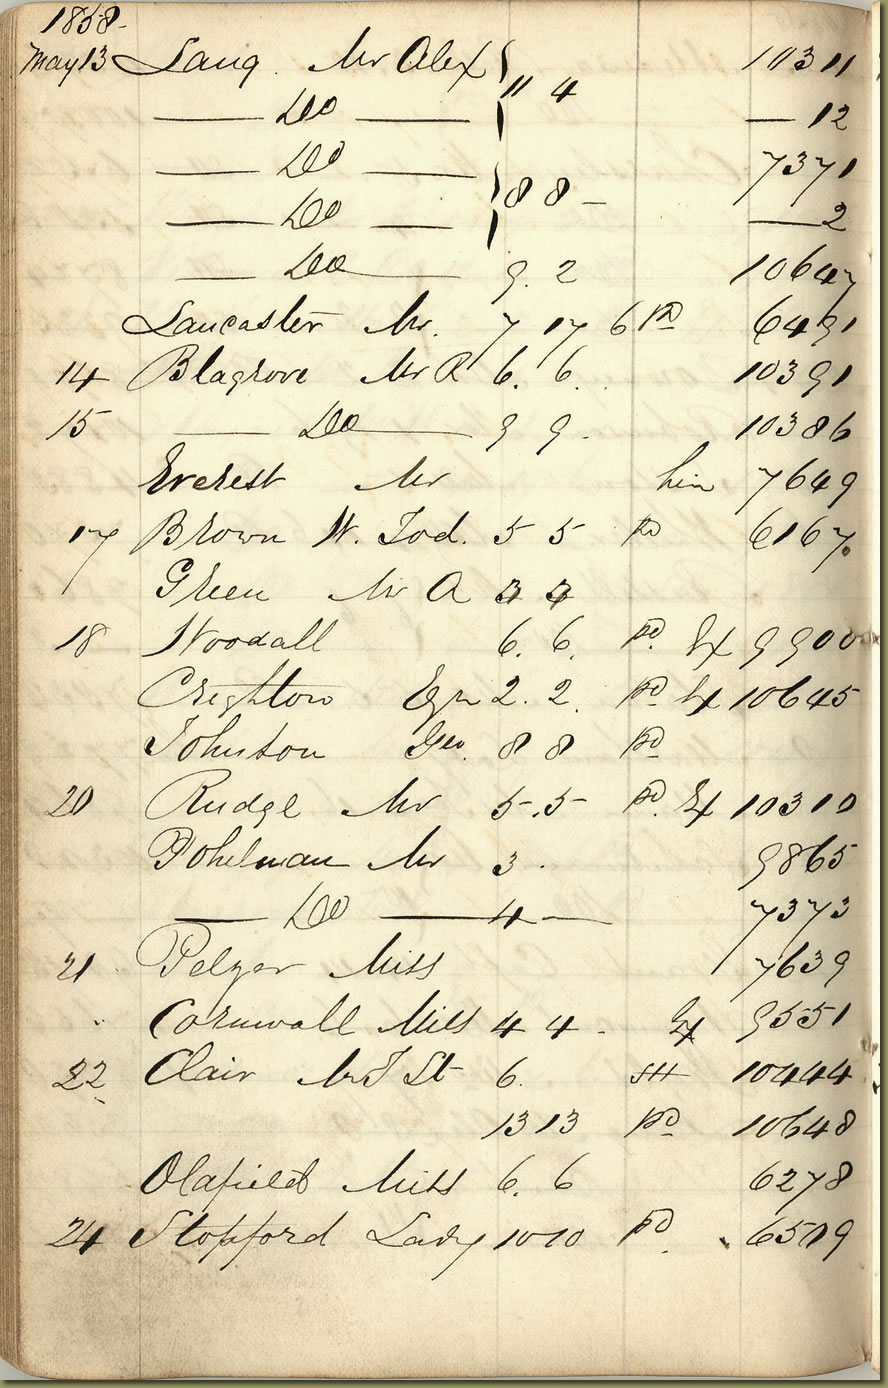 1858
May 13 Lang Mr Alex } " 4 10311
— Do — — 12
— Do — } 8 8 – 7371
— Do — — 2
— Do — 9. 2 10647
Lancaster Mr. 7 17 6 Pd 6491
14 Blagrove Mr R 6. 6. 10391
15 — Do — 9 9. 10386
Everest Mr hire 7649
17 Brown W. Tod. 5 5 Pd 6167.
Green Mr A
18 Woodall 6. 6. Pd. Ex 9900
Creighton 2. 2. Pd Ex 10645
Johnston Geo. 8 8 Pd
20 Rudge Mr 5.5 Pd. Ex 10310
Pohelman Mr 3. 9865
— Do — 4 — 7373
21 Pelzer Miss 7639
Cornwall Miss 4 4 – Ex 9551
22 Clair Mr J St 6. SH 10444
13 13 Pd 10648
Oldfield Miss 6. 6 6278
24 Stopford Lady 10 10 Pd. 6509